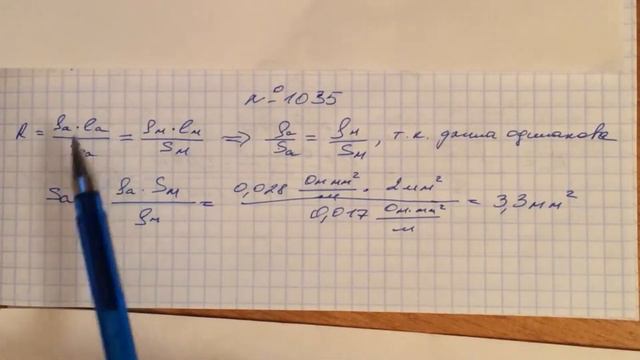 № 1035
R = ρa·ℓa / Sa = ρм·ℓм / Sм ⇒ ρa / Sa = ρм / Sм , т.к. длина одинакова
Sa = ρa·Sм / ρм = 0,028 Ом·мм² / м · 2мм² / 0,017 Ом·мм² / м = 3,3мм²